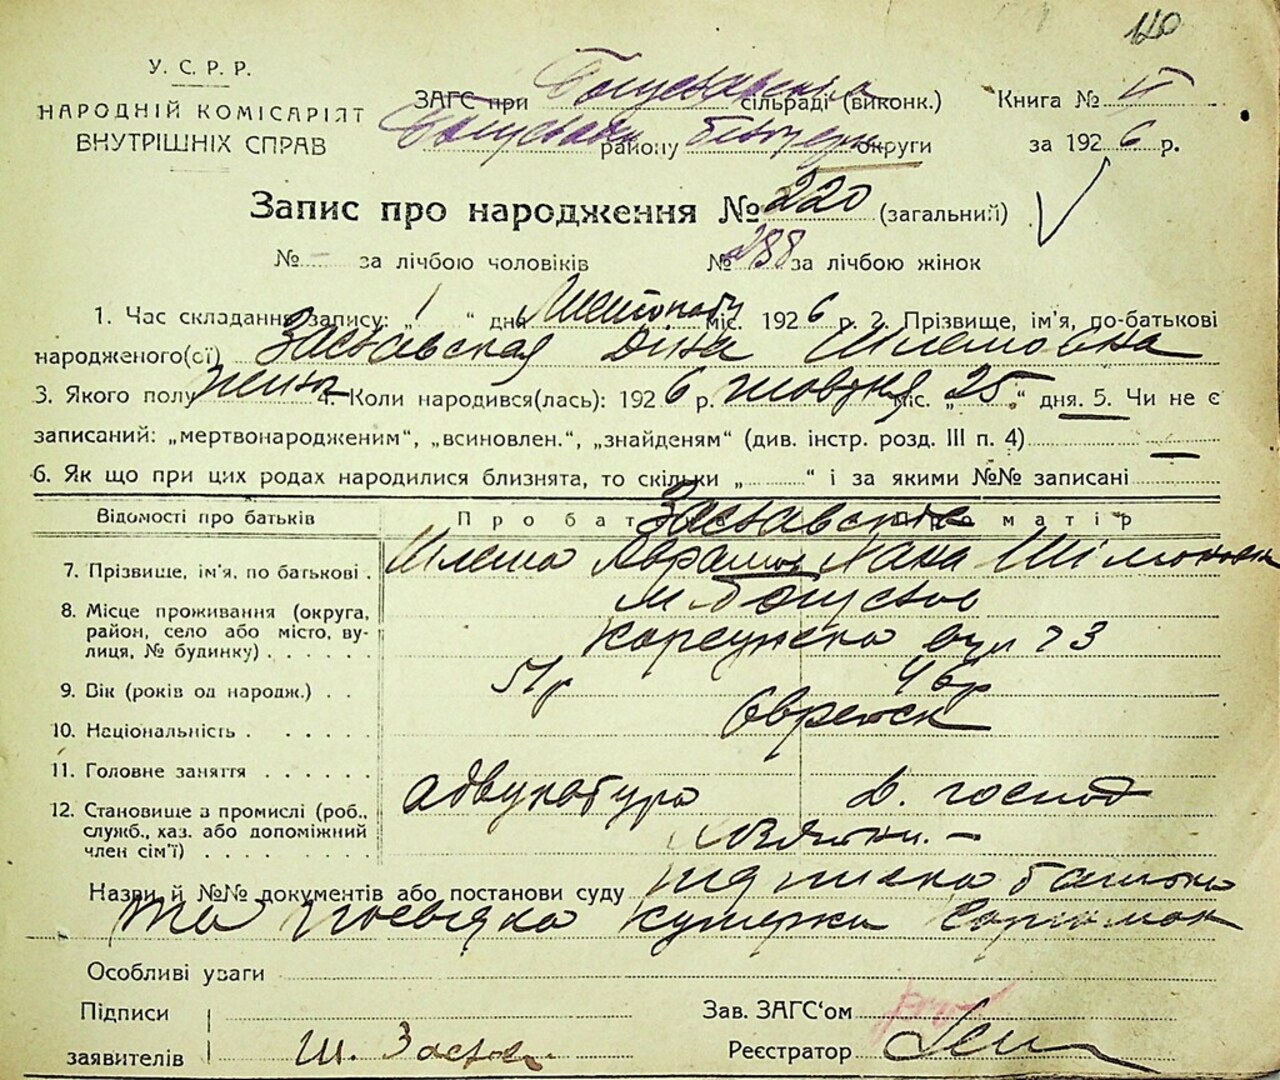 120
У. С. Р. Р.
НАРОДНІЙ КОМІСАРІЯТ
ВНУТРІШНІХ СПРАВ
ЗАГС при Богуславськім сільраді (виконк.) Книга №
Богуславськ району Білоцерк округи за 1926 р.
Запис про народження № 220 (загальний)
№ - за лічбою чоловіків № 288 за лічбою жінок
1. Час складання запису: „ 1 “ дня Листопаду міс. 1926 р. 2. Прізвище, ім'я, по-батькові
народженого(сї) Заславская Діна Шлемовна
3. Якого полу жіноч 4. Коли народився(лась): 1926 р. жовтня міс. „ 25 “ дня. 5. Чи не є
записаний: „мертвонародженим“, „всиновлен.“, „знайденям“ (див. інстр. розд. III п. 4) —
6. Як що при цих родах народилися близнята, то скільки „ “ і за якими №№ записані
Відомості про батьків Про батька Про матір
Заславские
7. Прізвище, ім'я, по батькові . Шлема Аврамов Хана Шімоновн
8. Місце проживання (округа, м Богуслав
район, село або місто, ву- Корсунська вул 23
лиця, № будинку) . . . . .
9. Вік (років од народж.) . . 51р 46р
10. Національність . . . . . . Єврейск
11. Головне заняття . . . . . . адвукатура д. господ
12. Становище з промислі (роб., хазяйки. -
служб., хаз. або допоміжний
член сім'ї) . . . . . . . .
Назви й №№ документів або постанови суду підписка батька
та
Особливі уваги
Підписи Зав. ЗАГС‘ом
заявителів Ш. Заслав Реєстратор